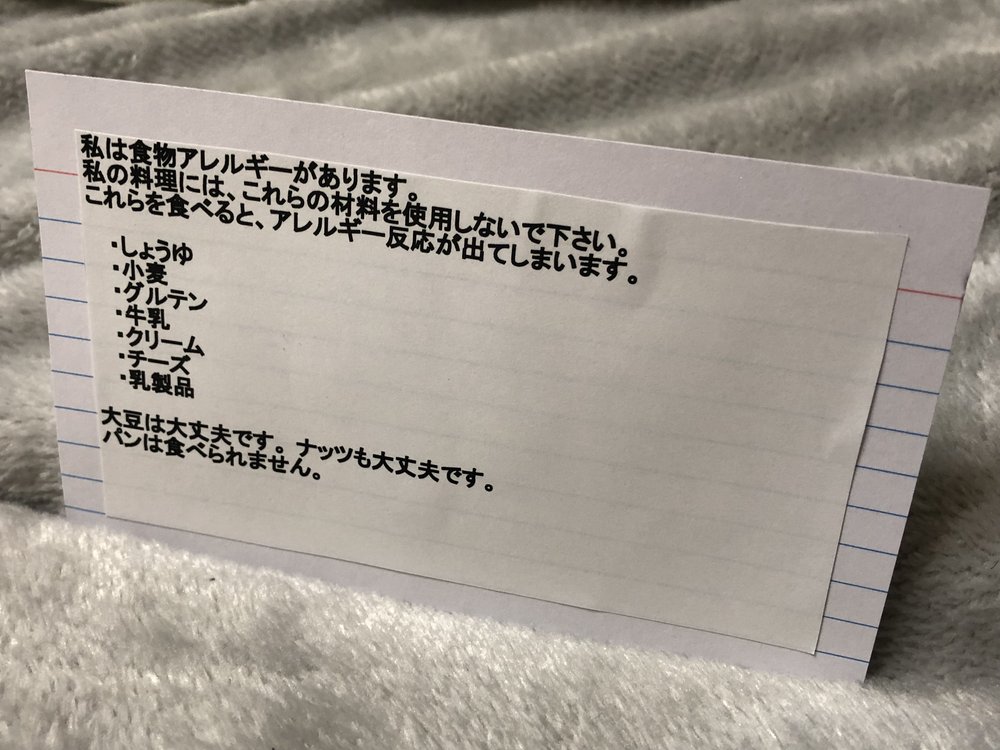 私は食物アレルギーがあります。
私の料理には、これらの材料を使用しないで下さい。
これらを食べると、アレルギー反応が出てしまいます。
・しょうゆ
・小麦
・グルテン
・牛乳
・クリーム
・チーズ
・乳製品
大豆は大丈夫です。ナッツも大丈夫です。
パンは食べられません。